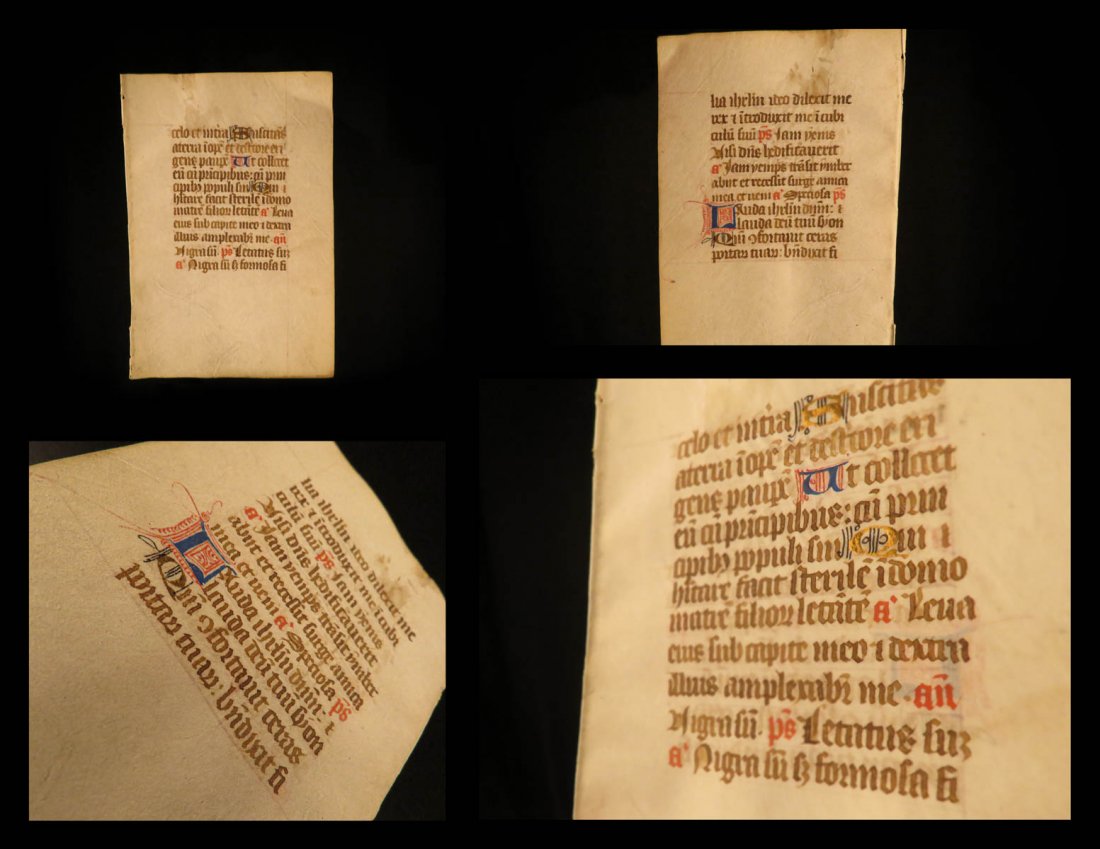 celo et in t̄ra Suscitās
aterra īopē et de stercore eri
gens paupē Ut collocet
eū cū prīcipibus: cū prin
cipibꝫ populi sui Qui ⁊
hītare facit sterilē ī domo
matrē filioꝝ letātē a͛ Leua
eius sub capite meo ⁊ dextra
illius amplexabit͛ me. añ
Nigra sū. p̄s Letatus suꝫ
a͛ Nigra sū sꝫ formosa fi
lia iherl̄m ideo dilexit me
rex ⁊ ītroduxit me ī cubi
culū suū p̄s Iam yems
Nisi dn̄s hedificauerit
a͛ Iam yemps trāsit ymber
abiit et recessit surge amica
mea et ueni a͛ Speciosa p̄s
Lauda iherl̄m dn̄m: ⁊
lauda deū tuū syon
Qm̄ ꝯfortauit ceras
portaꝝ tuaꝝ: bn̄dixit fi